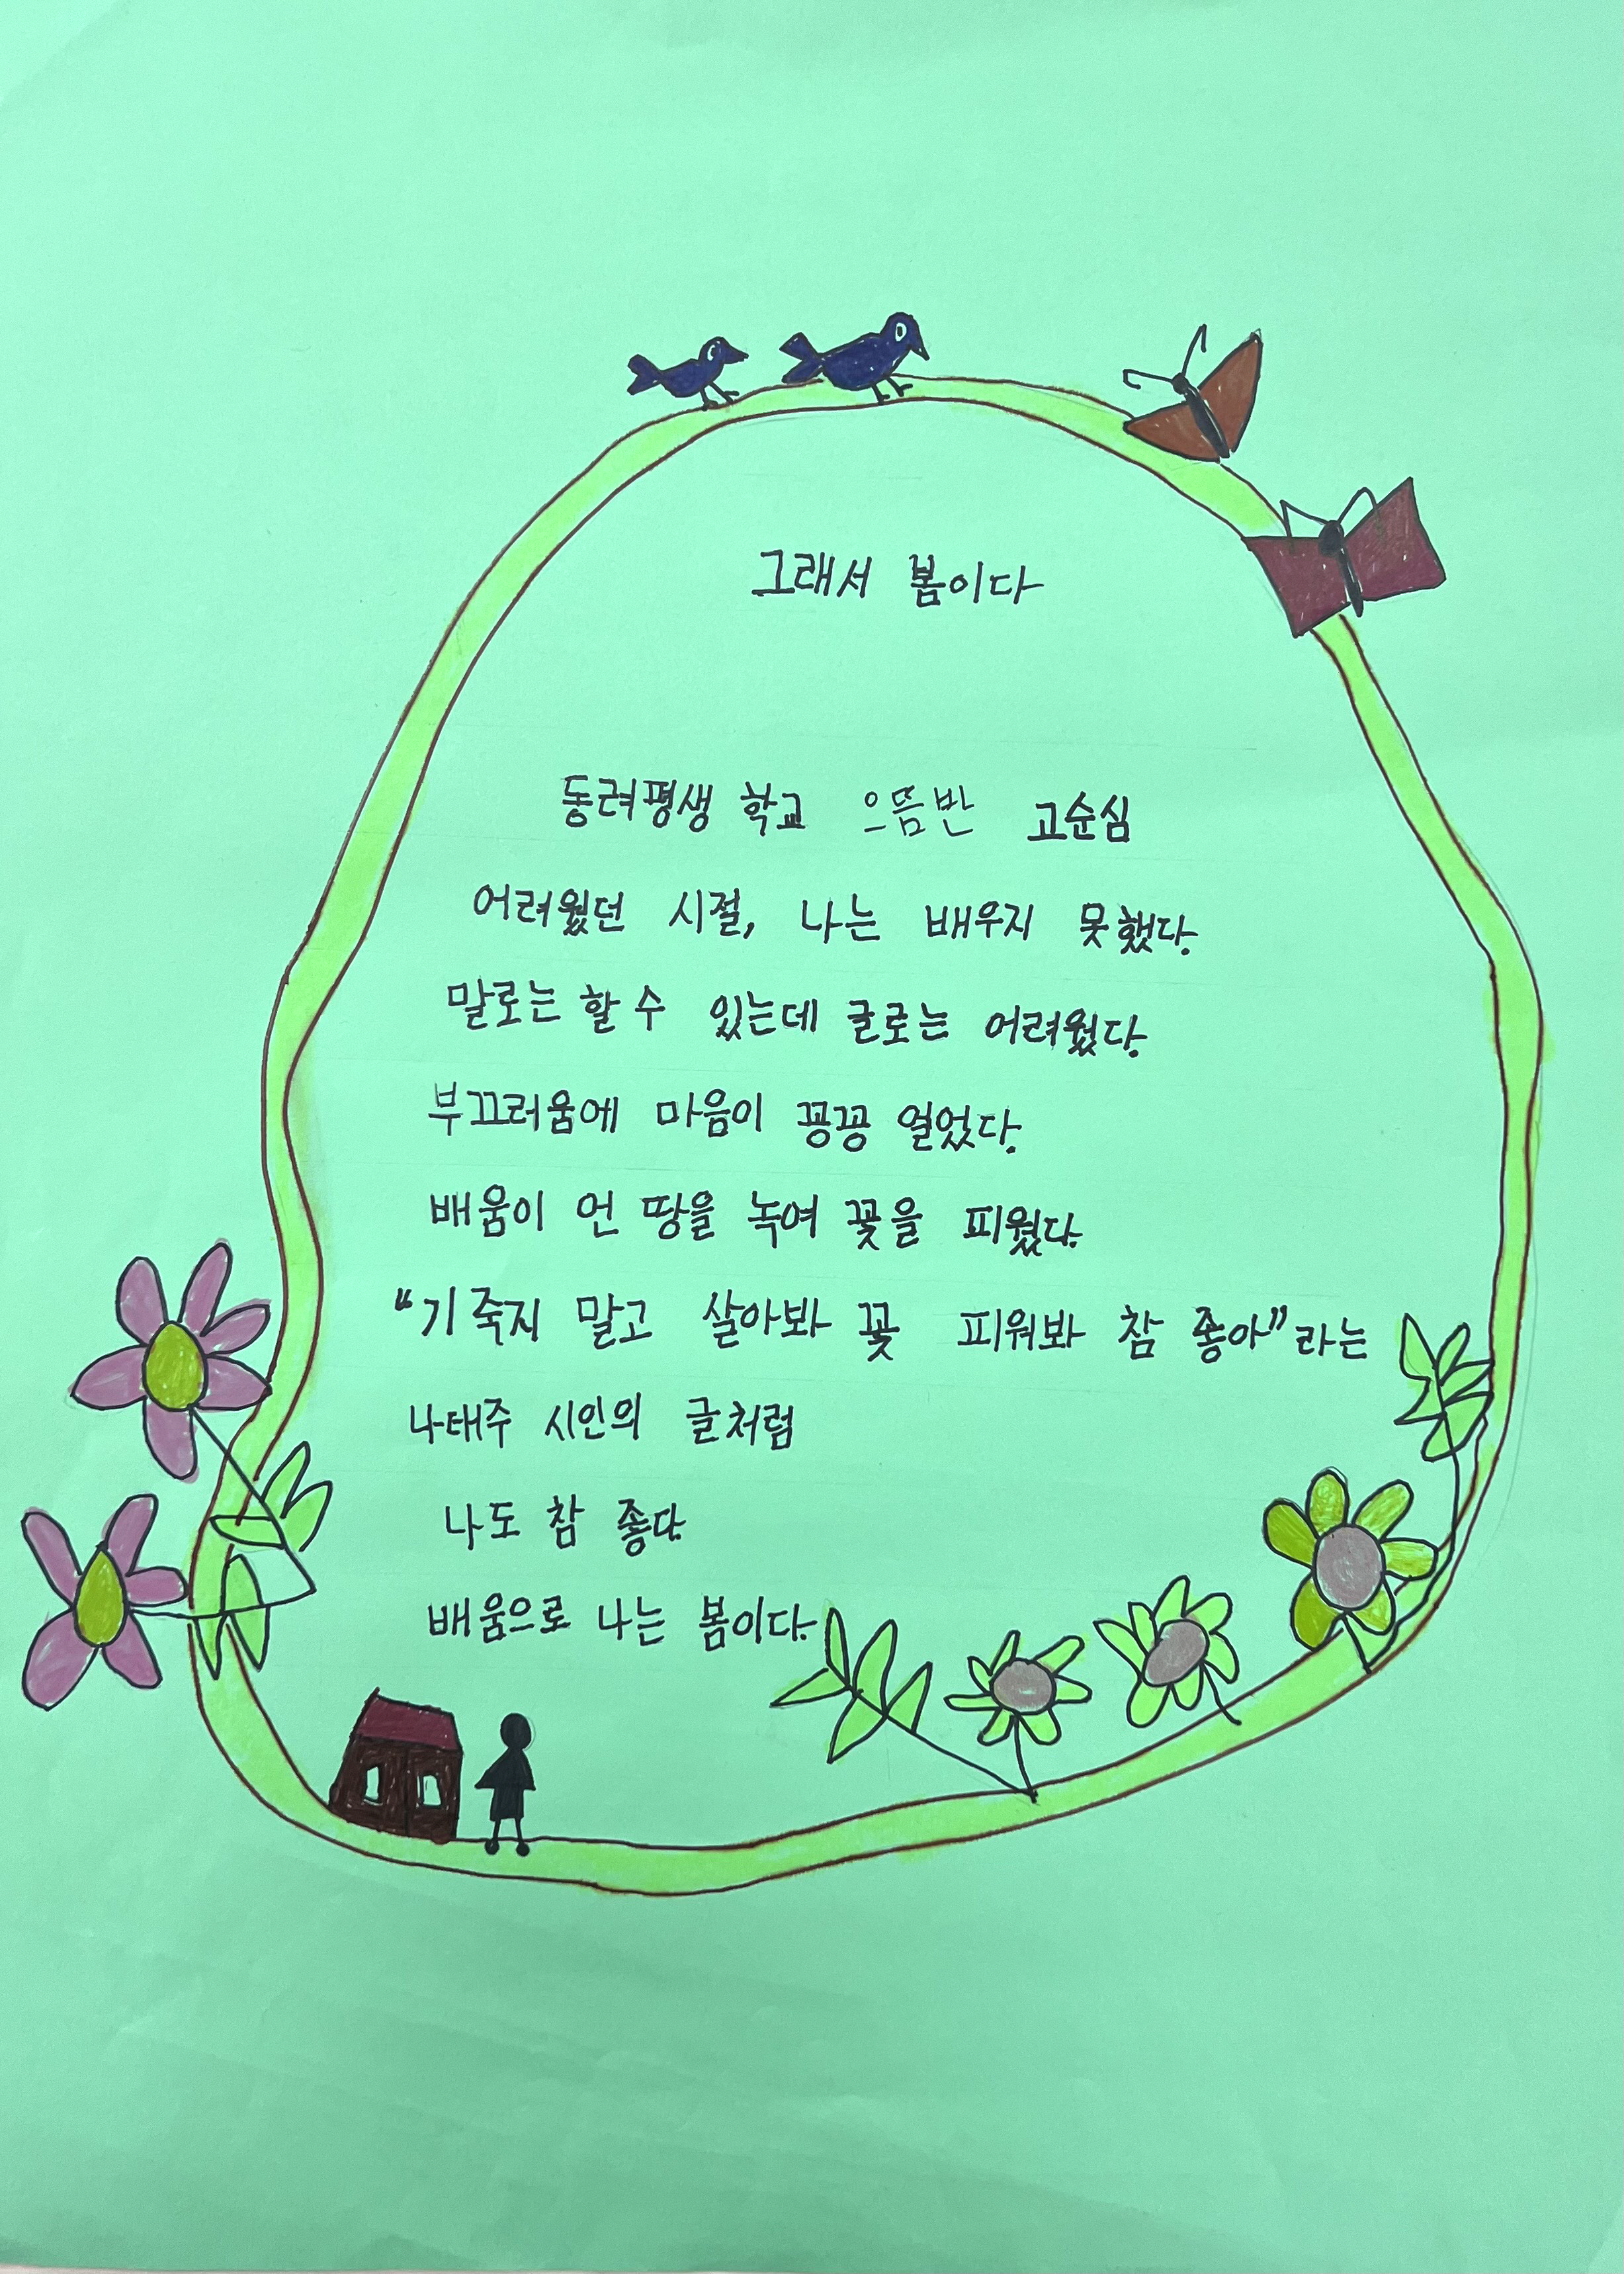 그래서 봄이다
동려평생 학교 으뜸반 고순심
어려웠던 시절, 나는 배우지 못했다.
말로는 할 수 있는데 글로는 어려웠다.
부끄러움에 마음이 꽁꽁 얼었다.
배움이 언 땅을 녹여 꽃을 피웠다.
“기죽지 말고 살아봐 꽃 피워봐 참 좋아”라는
나태주 시인의 글처럼
나도 참 좋다.
배움으로 나는 봄이다.